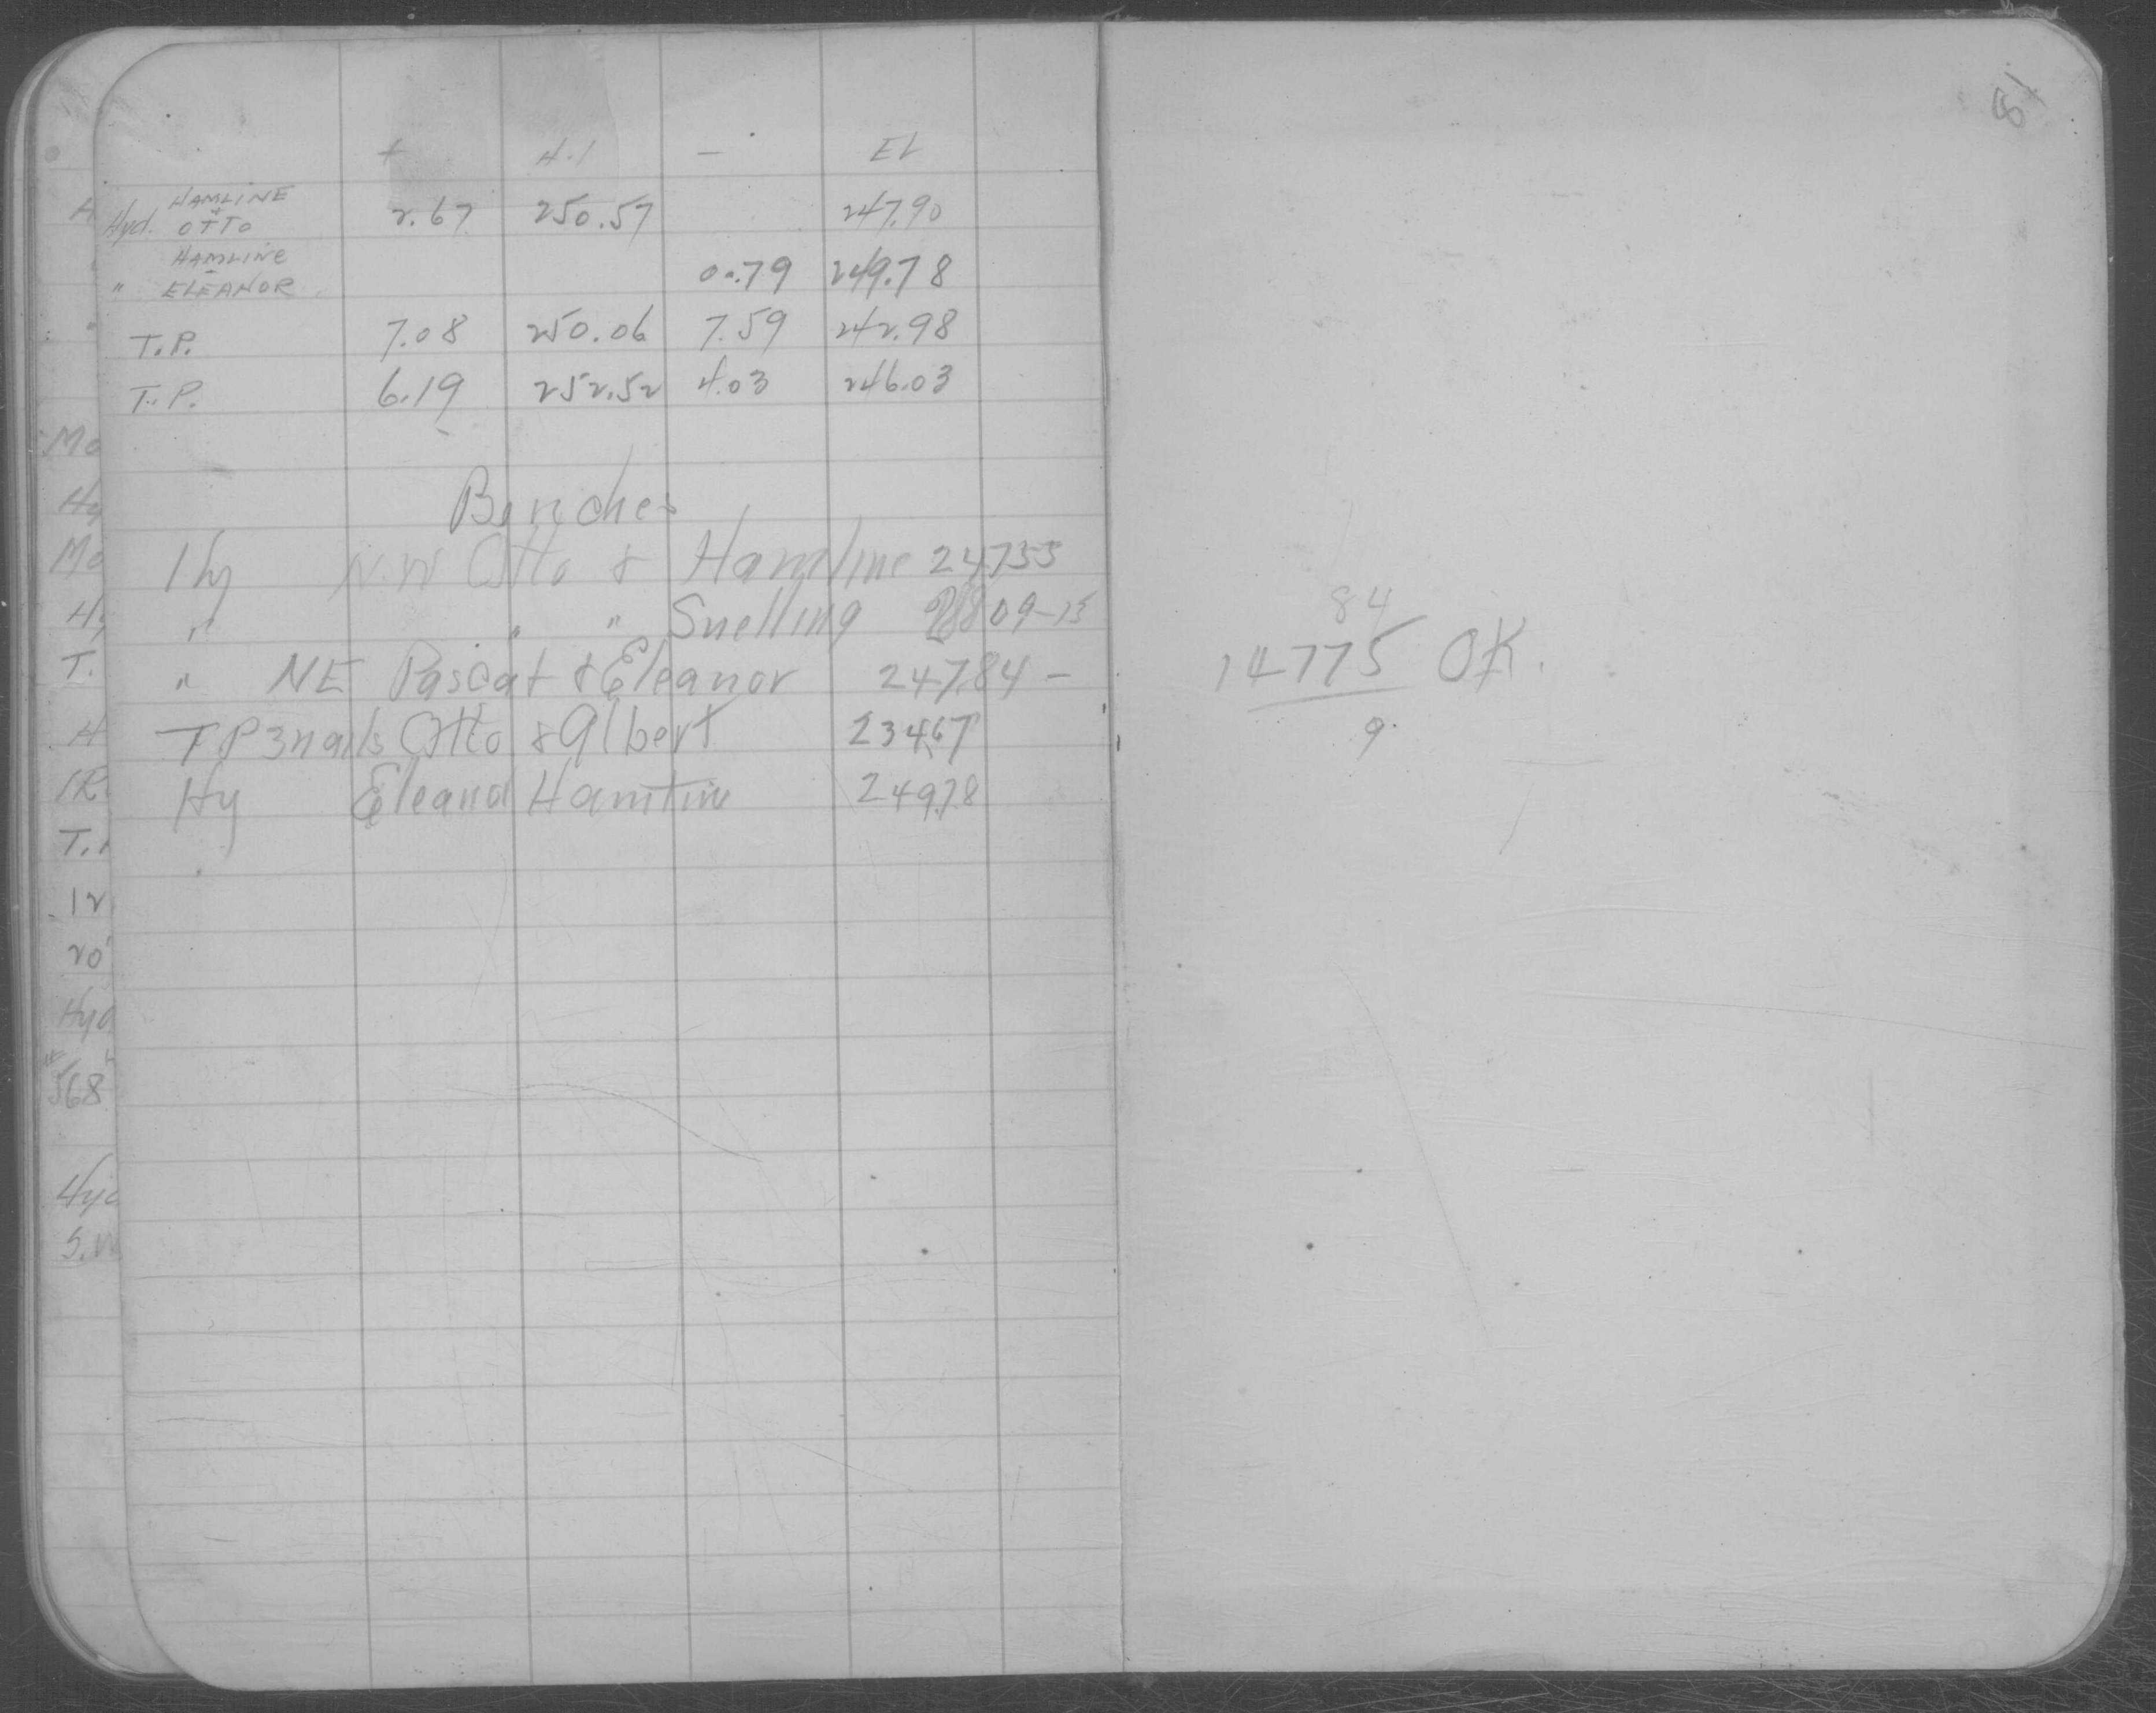 + H.I - EL
HAMLINE
Hyd. OTTO 2.67 250.57 247.90
HAMLINE
" ELEANOR 0.79 249.78
T.P. 7.08 250.06 7.59 242.98
T.P. 6.19 252.52 4.03 246.03
Benches
Hy N.W Otto & Hamline 24755
" " " Snelling 09-15
" NE Pascal & Eleanor 247.84 -
TP 3nails Otto & Albert 234.67
Hy Eleanor Hamline 249.78
81
84
14775 OK.
9.
Mo
Hy
Mo
Hy
T.
H
T.
12
20'
Hyd
568
Hyd
S.W